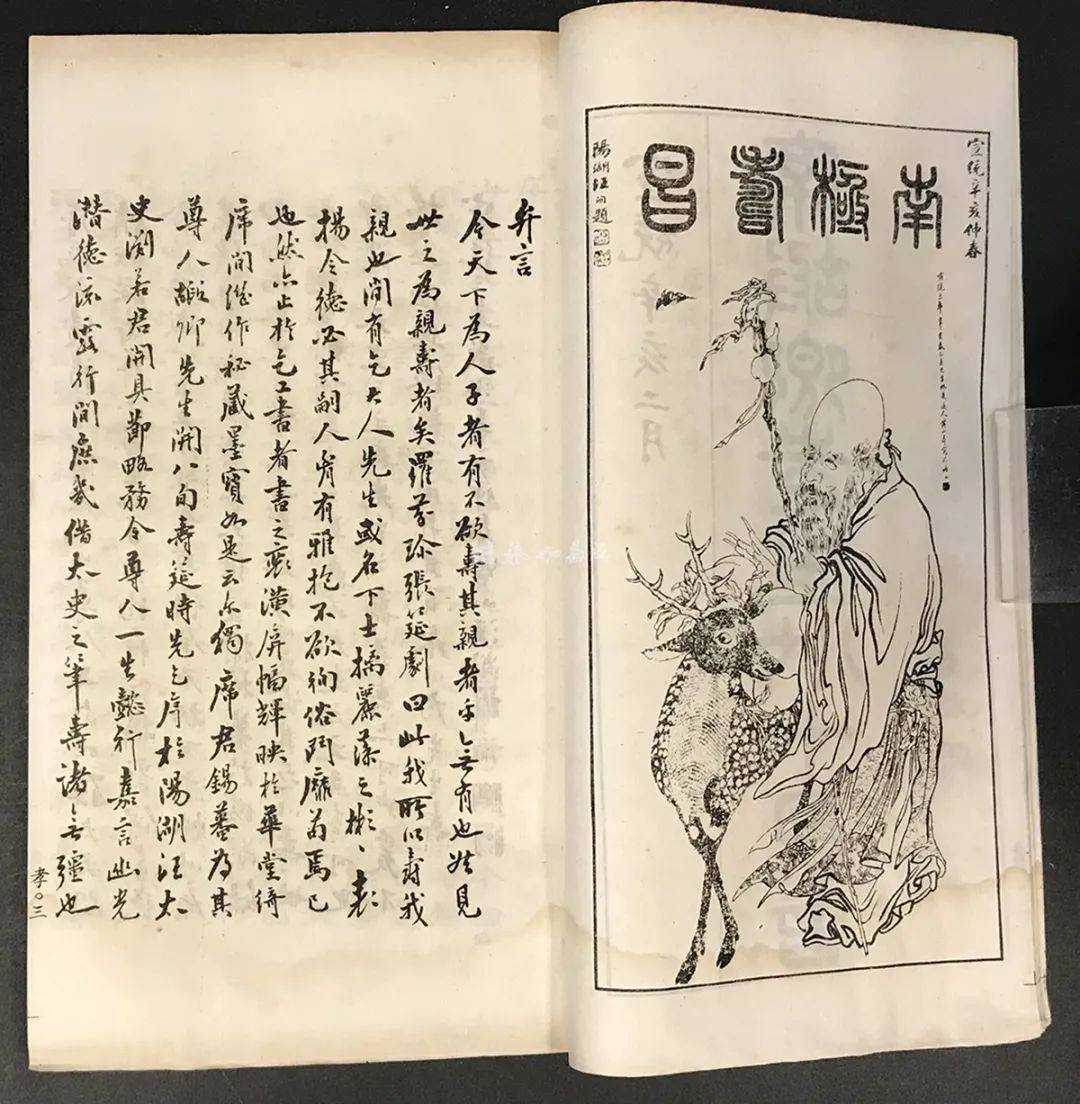 宣統辛亥仲春
南極壽昌
陽湖汪洵題
弁言
今天下為人子者有不欲壽其親者乎無有也見
世之為親壽者矣羅芬珍張筵劇曰此我所以壽我
親也間有乞大人先生或名下士摛麗藻之彬、表
揚令德必其嗣人有雅抱不欲徇俗鬥靡焉已
也然亦止於乞工書者書之潢屏幅輝映於華堂綺
席間繼作秘藏墨寶如是云尔獨席君錫蕃為其
尊人卿先生開八旬壽筵時先乞序於陽湖汪太
史淵若君開具節略務令尊人一生懿行嘉言幽光
潛德流露行間庶幾借太史之筆壽諸無疆也
孝〇三